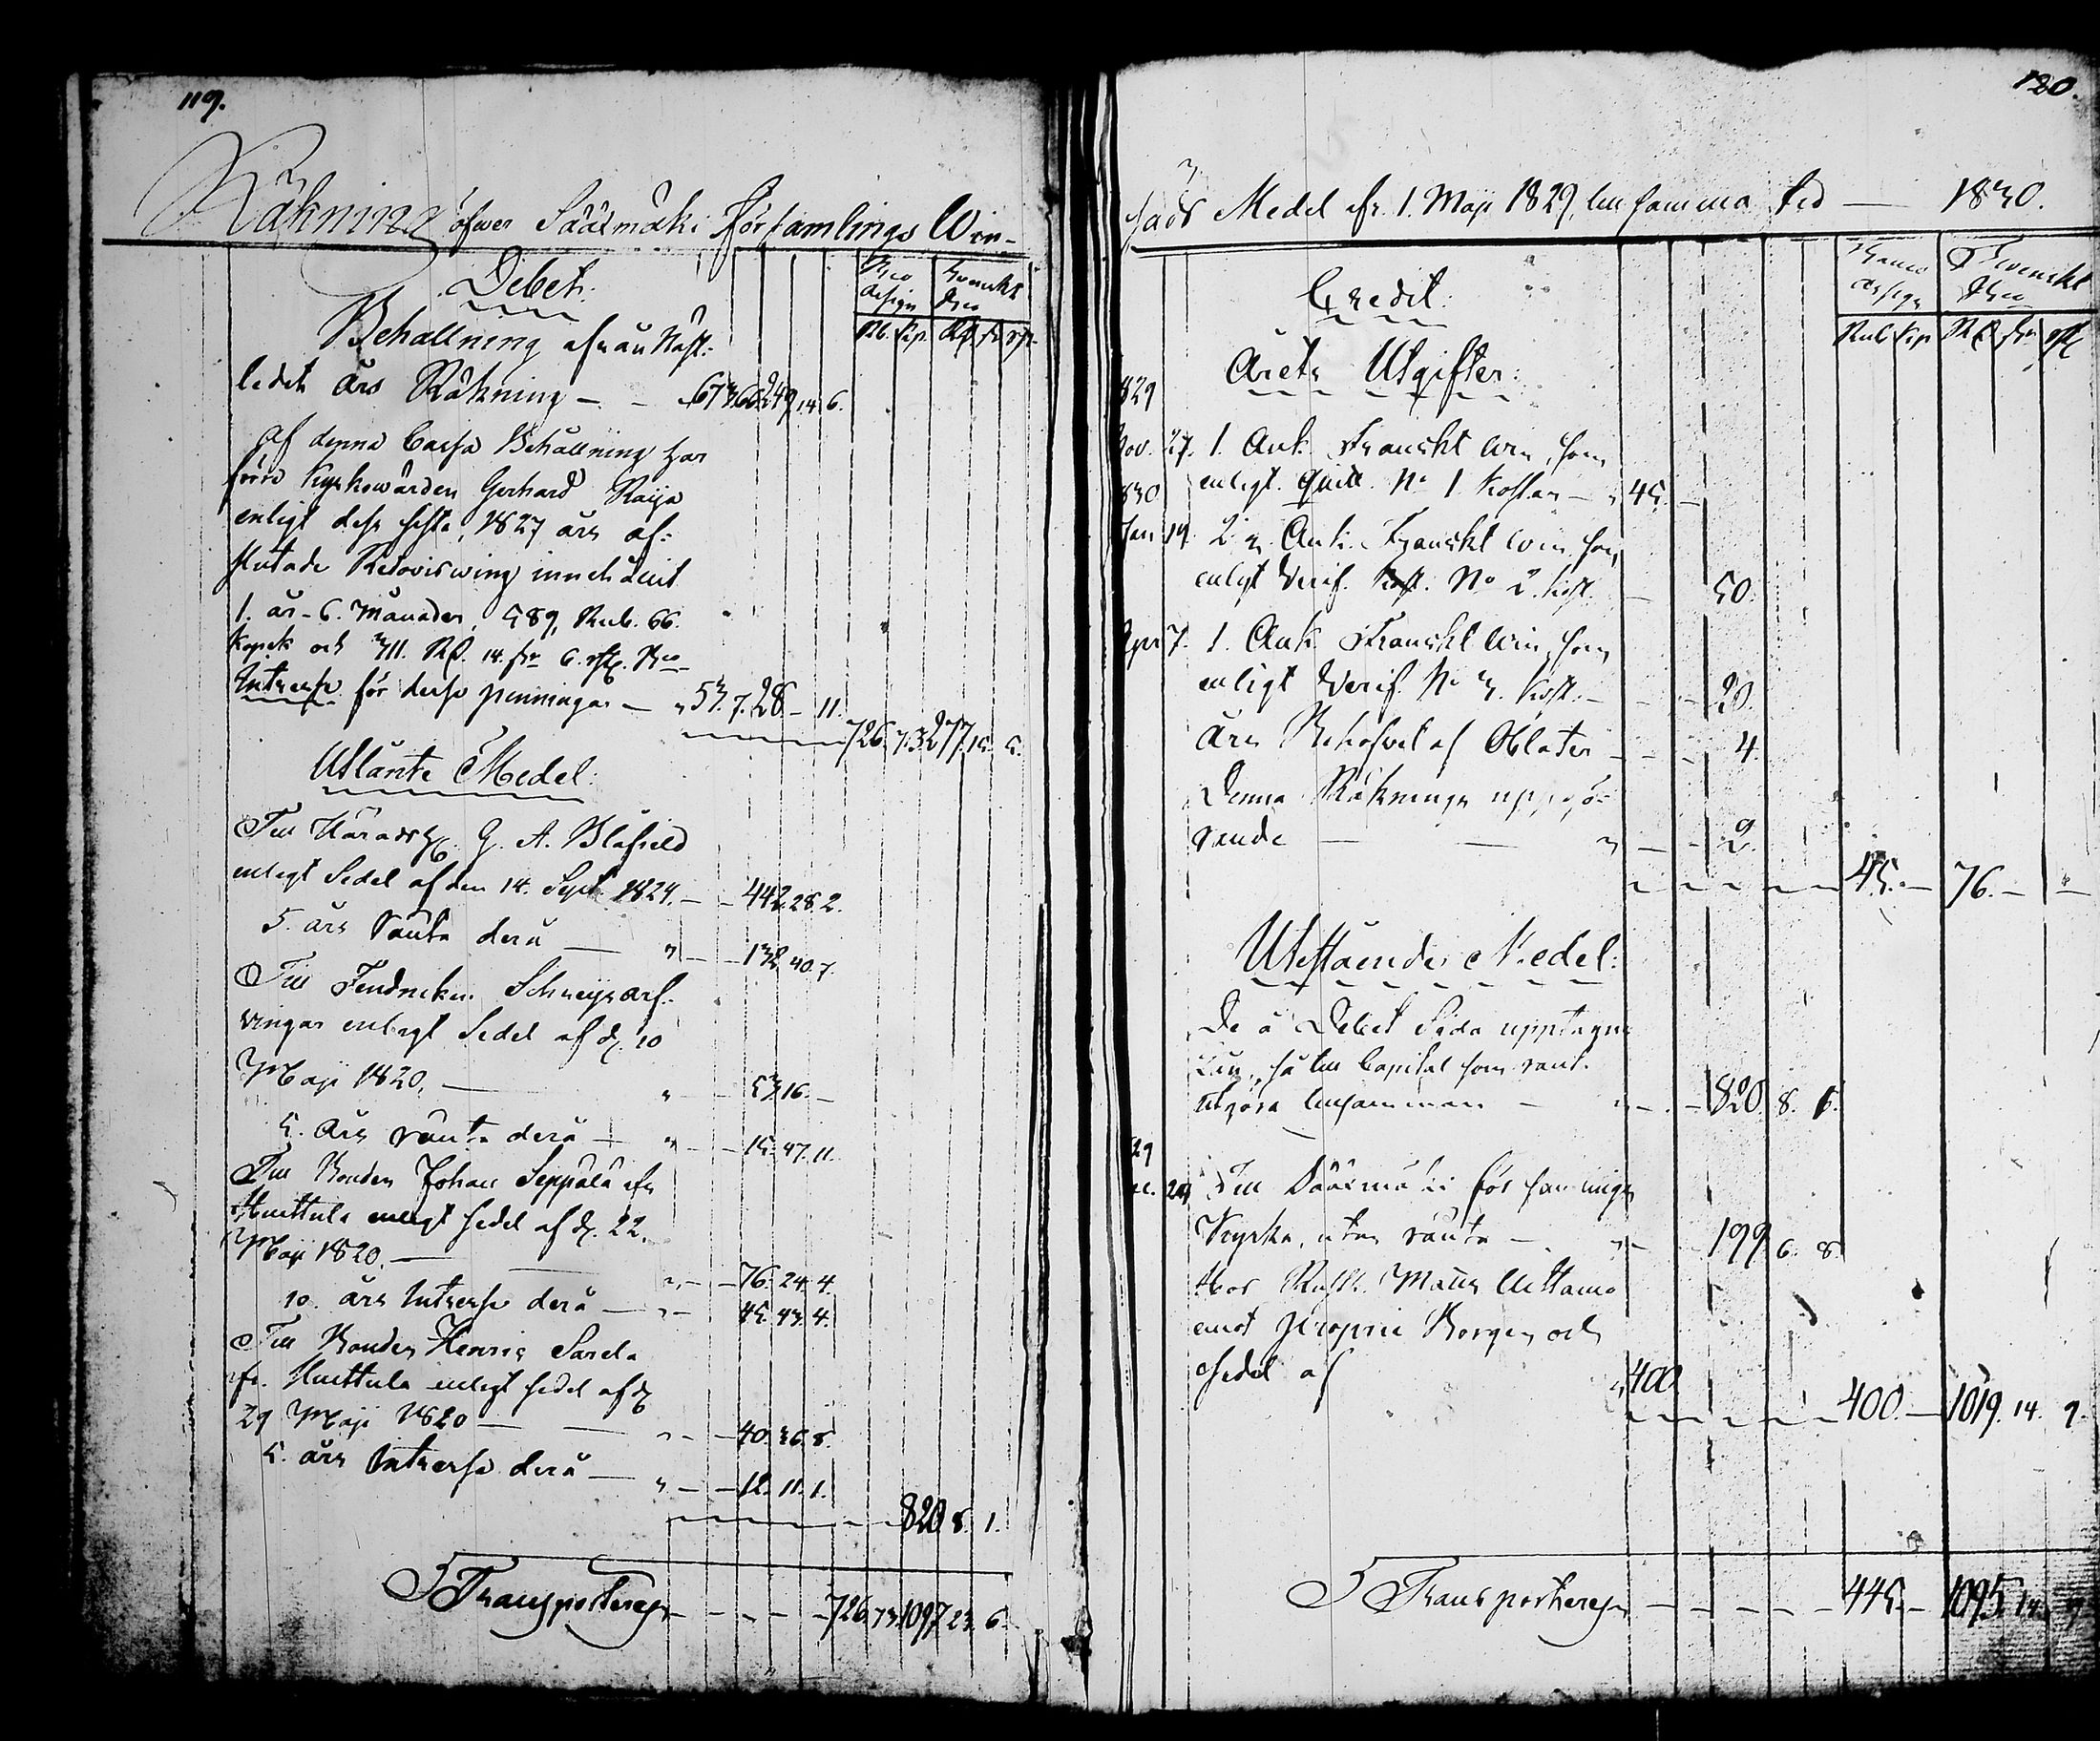 119.
Räkning öfwer Sääxmäki Församlings Win-
Debet:
Bco Assign. Swenskt Bco
Rub. kop. Rd. sk. rst.
Behållning ifrån näst-
ledet års Räkning — 673.66. 249. 14. 6.
Af denna Cassa Behållning har
förre Kyrkowärden Gerhard Raija
enligt dess sista, 1827 års af-
slutade Redovisning innehållit
1. år - 6. Månader, 589, Rub. 66.
Kopek och 311. Rd. 14. sk. 6. rst. Bco
Intresse för desse penningar — " 53. 7. 28. - 11.
726. 73. 277. 15. 5.
Utlånte Medel:
Till Häradsh. G. A. Blåfield
enligt Sedel af den 14. Sept. 1824. — 442. 28. 2.
5. års Ränta derå — " — 132. 40. 7.
Till Fendricken Schreys arf-
vingar enligt Sedel af d. 10
Maji 1820. — " — 53. 16. —
5. års ränta derå — " — 15. 47. 11.
Till Bonden Johan Seppälä ifr.
Huittula enligt sedel af d. 22.
Maji 1820. — " — 76. 24. 4.
10. års Intresse derå — " — 45. 43. 4.
Till Bonden Henric Sarela
ifr. Huittula enligt sedel af d.
29 Maji 1820 — " — 40. 36. 8.
5. års Intresse derå — " — 12. 11. 1.
820. 8. 1.
Transporteras — 726. 73. 1097. 23. 6.
120.
sads Medel ifr. 1. Maji 1829, till samma tid — 1830.
Credit:
Banco Assign. Swenskt Bco
Rub kop Rd sk. rst
Årets Utgifter:
829
Nov. 27. 1. Ank. Franskt win, som
enligt quitt. No 1 kostar — " 45. —
830
Jan 19. 2 Ank. Franskt win som
enligt Verif. No 2. kost. — 50.
Apr 7. 1. Ank. Franskt win, som
enligt Verif. No 3. kost. — 20.
Års Behofvet af Oblater — 4.
Denna Räknings uppgö-
rande — " — 2.
45. — 76. — "
Utestående Medel:
De å Debet Sida upptagne
Lån, så till Capital som ränt.
utgöra tillsammans — " — 820. 8. 1.
29
24 Till Sääxmäki församlings
Kyrka, utan ränta — " — 199. 6. 8.
Hos Rusth. Matts Uttamo
emot proprie Borgen och
Sedel af " 400
400. — 1019. 14. 9.
Transporteras — 445. — 1095. 14. 9.